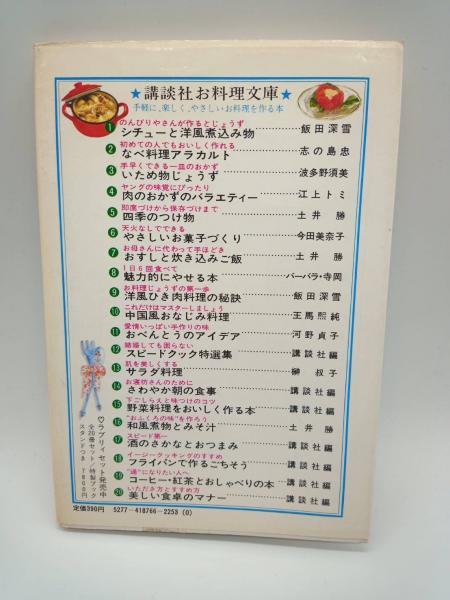 ★講談社お料理文庫★
手軽に、楽しく、やさしいお料理を作る本
のんびりやさんが作るとじょうず
1 シチューと洋風煮込み物 飯田深雪
初めての人でもおいしく作れる
2 なべ料理アラカルト 志の島忠
手早くできる一皿のおかず
3 いため物じょうず 波多野須美
ヤングの味覚にぴったり
4 肉のおかずのバラエティー 江上トミ
即席づけから保存づけまで
5 四季のつけ物 土井 勝
天火なしでできる
6 やさしいお菓子づくり 今田美奈子
お母さんに代わって手ほどき
7 おすしと炊き込みご飯 土井 勝
1日6回食べて
8 魅力的にやせる本 バーバラ・寺岡
お料理じょうずの第一歩
9 洋風ひき肉料理の秘訣 飯田深雪
これだけはマスターしましょう
10 中国風おなじみ料理 王馬熙純
愛情いっぱい手作りの味
11 おべんとうのアイデア 河野貞子
結婚しても困らない
12 スピードクック特選集 講談社編
肌を美しくする
13 サラダ料理 榊 叔子
お寝坊さんのために
14 さわやか朝の食事 講談社編
下ごしらえと味つけのコツ
15 野菜料理をおいしく作る本 講談社編
"おふくろの味"を作ろう
16 和風煮物とみそ汁 土井 勝
スピード第一
17 酒のさかなとおつまみ 講談社編
イージークッキングのすすめ
18 フライパンで作るごちそう 講談社編
"通"になりたい人へ
19 コーヒー・紅茶とおしゃべりの本 講談社編
いただき方とすすめ方
20 美しい食卓のマナー 講談社編
♡ラブリィセット発売中
全20冊セット/特製ブック
スタンドつき 7800円
定価390円 5277-418766-2253 (0)